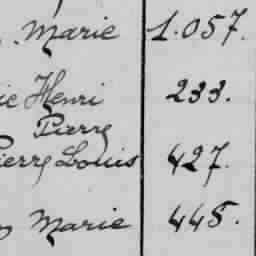 Marie 1.057.
Henri 233.
Pierre
Pierre Louis 427.
Marie 445.